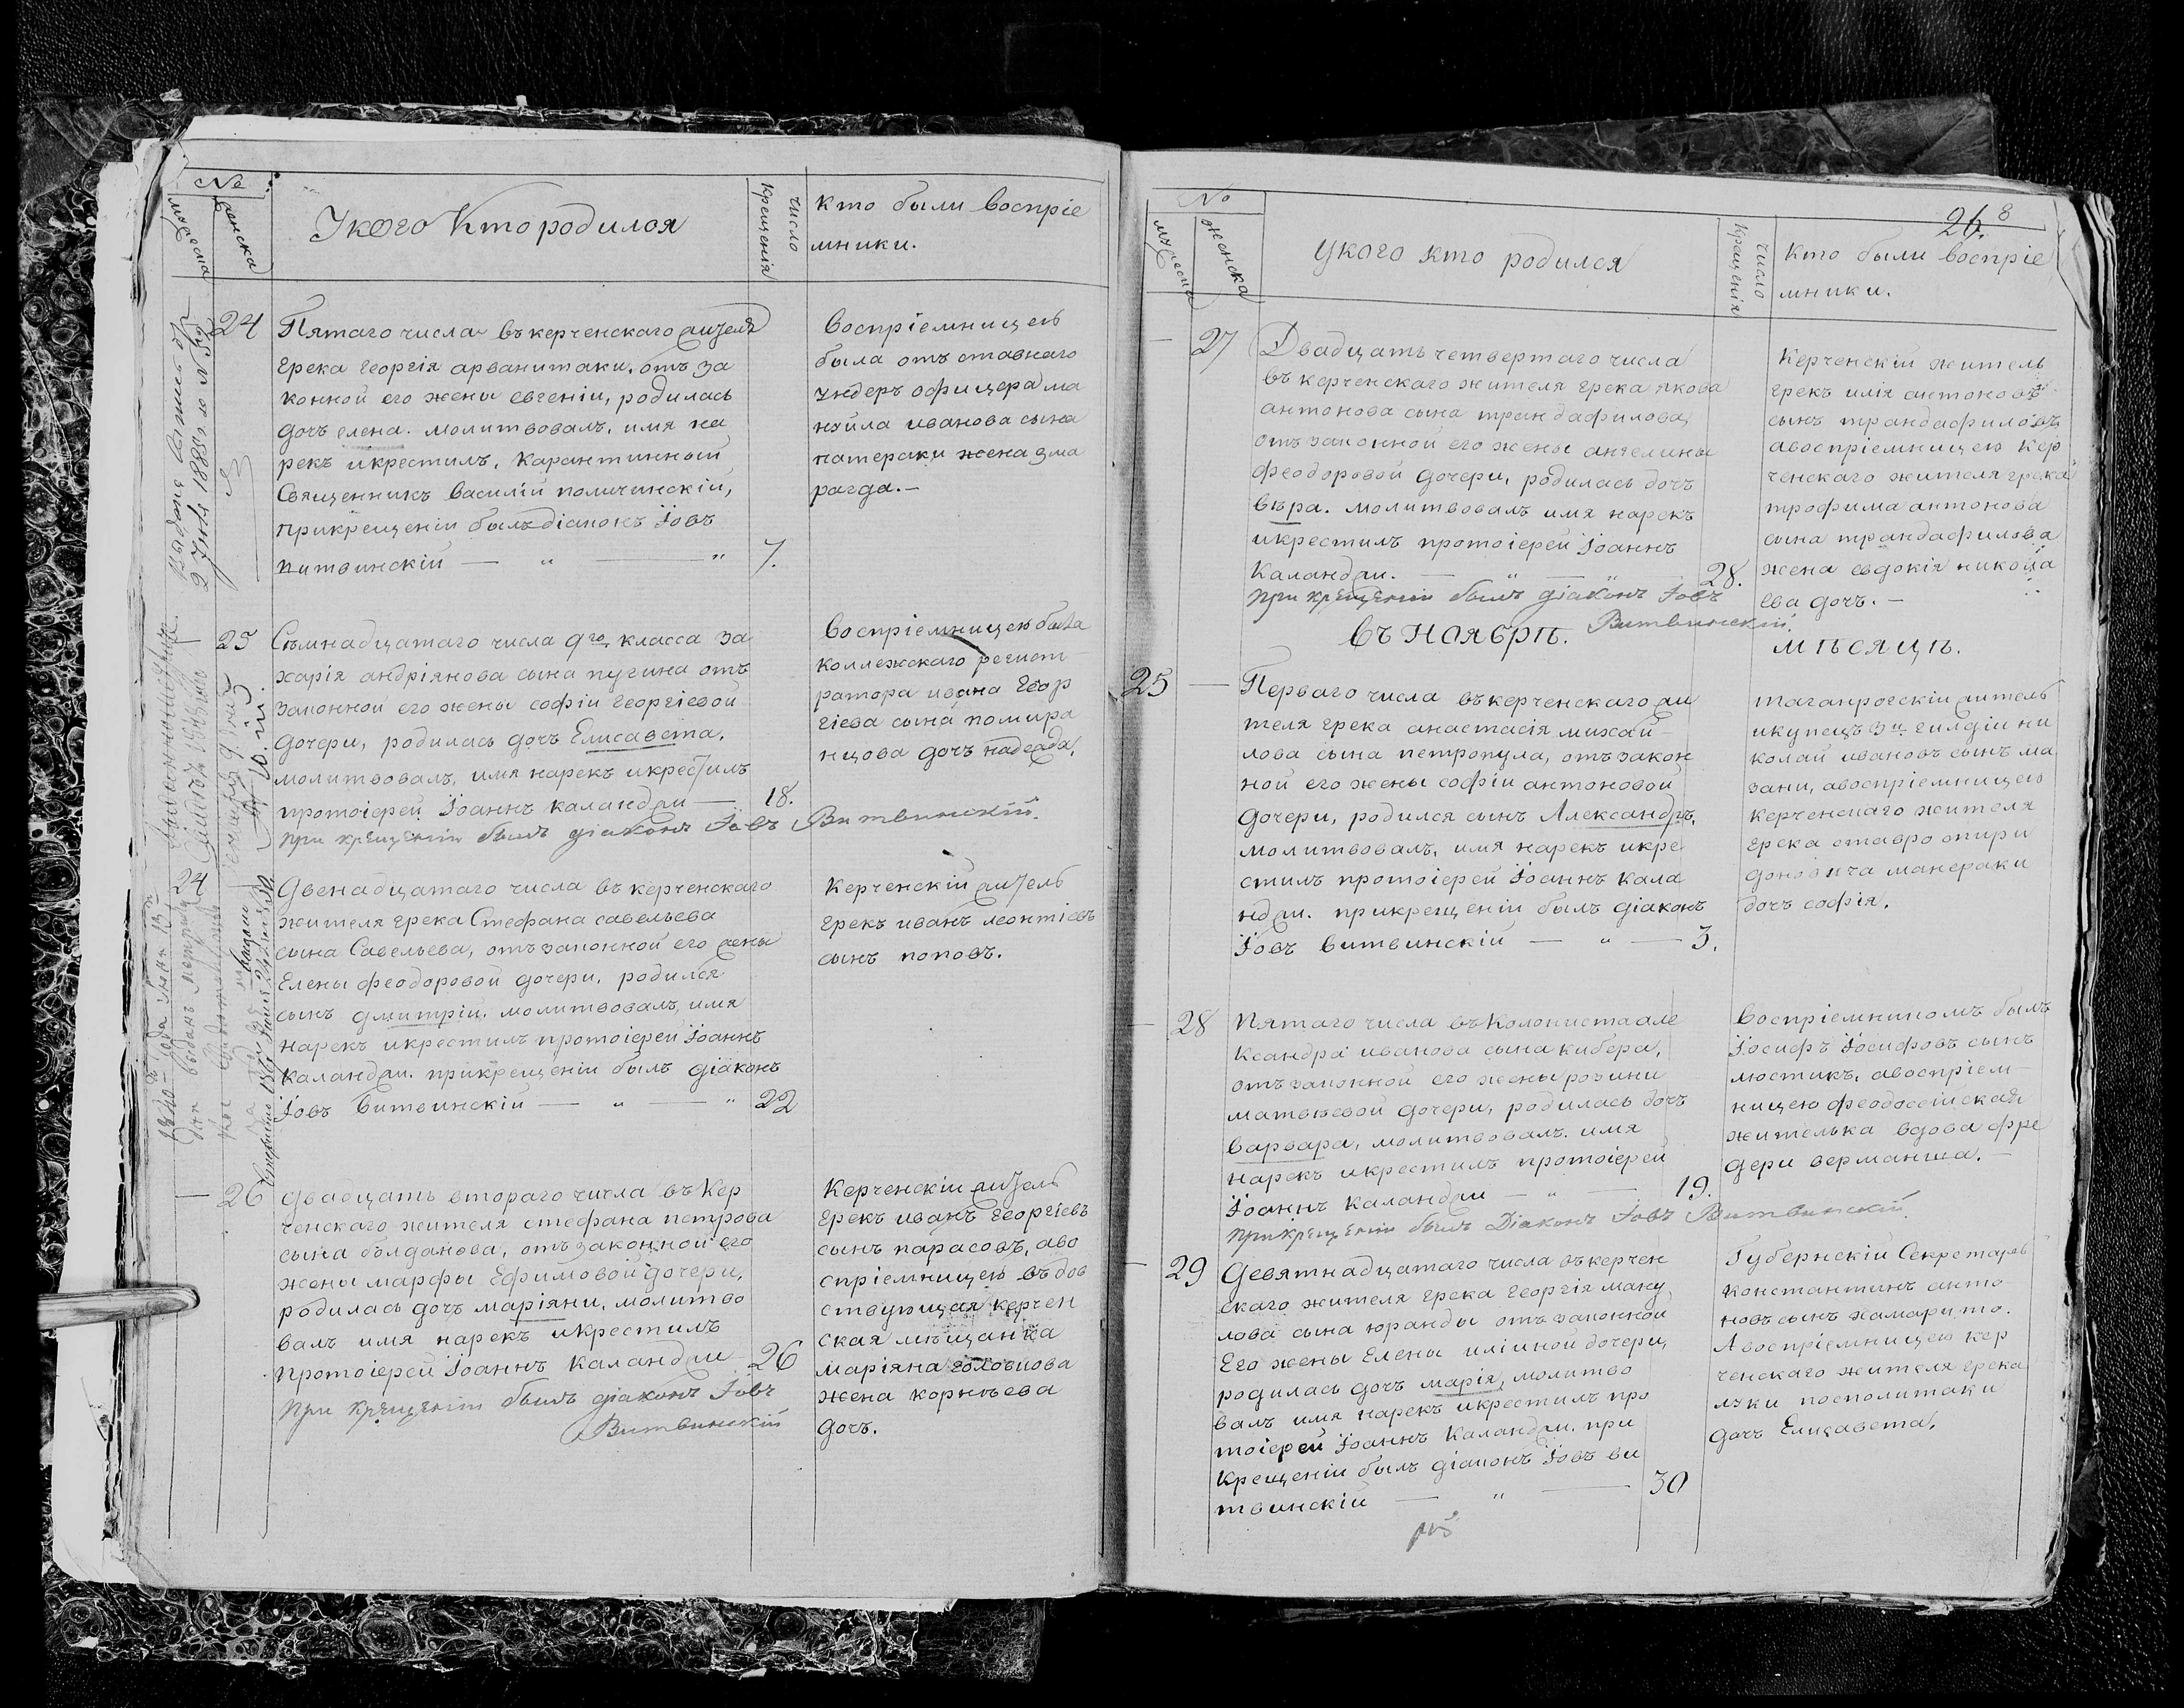 №
мужеска
женска
Укого Кто родился
число
крещенія
Кто были воспріе
мники.
24
Пятаго числа въ керченскаго жителя
грека георгія арванитаки, отъ за
конной его жены евгеніи, родилась
дочь елена. молитвовалъ, имя на
рекъ икрестилъ, Карантинный
Священникъ василій поличинскій,
прикрещеніи былъ діаконъ Іовъ
витвинскій — „ — „ 7.
воспріемницею
была отъ ставнаго
ундеръ офицера ма
нуйла иванова сына
патераки жена зма
рагда. —
25
Съмнадцатаго числа 9го класса за
харія андріянова сына пугина отъ
законной его жены софіи георгіевой
дочери, родилась дочь Елисавета.
молитвовалъ, имя нарекъ икрестилъ
протоіерей Іоаннъ каланджи — 18.
при крещеніи былъ діаконъ Іовъ Витвинскій.
воспріемницею была
коллежскаго регист
ратора ивана геор
гіева сына помира
нцова дочь надежда.
24
Двенадцатаго числа въ керченскаго
жителя грека Стефана савельева
сына Савельева, отъ законной его жены
Елены феодоровой дочери, родился
сынъ дмитрій. молитвовалъ, имя
нарекъ икрестилъ протоіерей Іоаннъ
Каланджи. прикрещеніи былъ діаконъ
Іовъ Витвинскій — „ — „ 22
Керченскій житель
грекъ иванъ леонтіевъ
сынъ поповъ.
26
двадцать втораго числа въ Кер
ченскаго жителя стефана петрова
сына болданова, отъ законной его
жены марфы Ефимовой дочери,
родилась дочь маріяни, молитво
валъ имя нарекъ икрестилъ
протоіерей Іоаннъ Каланджи 26
при крещеніи былъ діаконъ Іовъ
Витвинскій
Керченскій житель
грекъ иванъ георгіевъ
сынъ парасовъ, аво
спріемницею въ дов
ствующая керчен
ская мѣщанка
маріяна
жена корнѣева
дочь.
26.
8
№
мужеска
женска
укого кто родился
число
крещенія
Кто были воспріе
мники.
27
Двадцать четвертаго числа
въ керченскаго жителя грека якова
антонова сына трандафилова,
отъ законной его жены ангелины
феодоровой дочери, родилась дочь
вѣра. молитвовалъ имя нарекъ
икрестилъ протоіерей Іоаннъ
Каланджи. — „ — „ 28.
при крещеніи былъ діаконъ Іовъ
Витвинскій.
Керченскій житель
грекъ илія антоновъ
сынъ трандафиловъ
авоспріемницею Кер
ченскаго жителя грека
трофима антонова
сына трандафилова
жена евдокія никола
ева дочь. —
въ НОЯБРѢ. мѣсяцѣ.
25
Перваго числа въ керченскаго жи
теля грека анастасія михай
лова сына петропула, отъ закон
ной его жены софіи антоновой
дочери, родился сынъ Александръ,
молитвовалъ, имя нарекъ икре
стилъ протоіерей Іоаннъ кала
нджи. прикрещеніи былъ діаконъ
Іовъ витвинскій — „ — 3.
таганрогскій житель
икупецъ 3й гилдіи ни
колай ивановъ сынъ ма
зани, авоспріемницею
керченскаго жителя
грека ставро спири
доновича манераки
дочь софія.
28
Пятаго числа въ Колониста але
ксандра иванова сына кибера,
отъ законной его жены розины
матвѣевой дочери, родилась дочь
варвара, молитвовалъ. имя
нарекъ икрестилъ протоіерей
Іоаннъ Каланджи — „ — 19.
прикрещеніи былъ Діаконъ Іовъ Витвинскій.
воспріемникомъ былъ
Іосифъ Іосифовъ сынъ
мюстикъ, авоспріем
ницею феодоссійская
жителька вдова фре
дери верманша. —
29
девятнадцатаго числа въ керчен
скаго жителя грека георгія ману
лова сына юранды отъ законной
Его жены Елены иліиной дочери,
родилась дочь марія, молитво
валъ имя нарекъ икрестилъ про
тоіерей Іоаннъ Каланджи. при
крещеніи былъ діаконъ Іовъ ви
твинскій — „ — 30
Губернскій Секретарь
Константинъ анто
новъ сынъ хамарито.
Авоспріемницею кер
ченскаго жителя грека
луки посполитаки
дочь Елисавета.